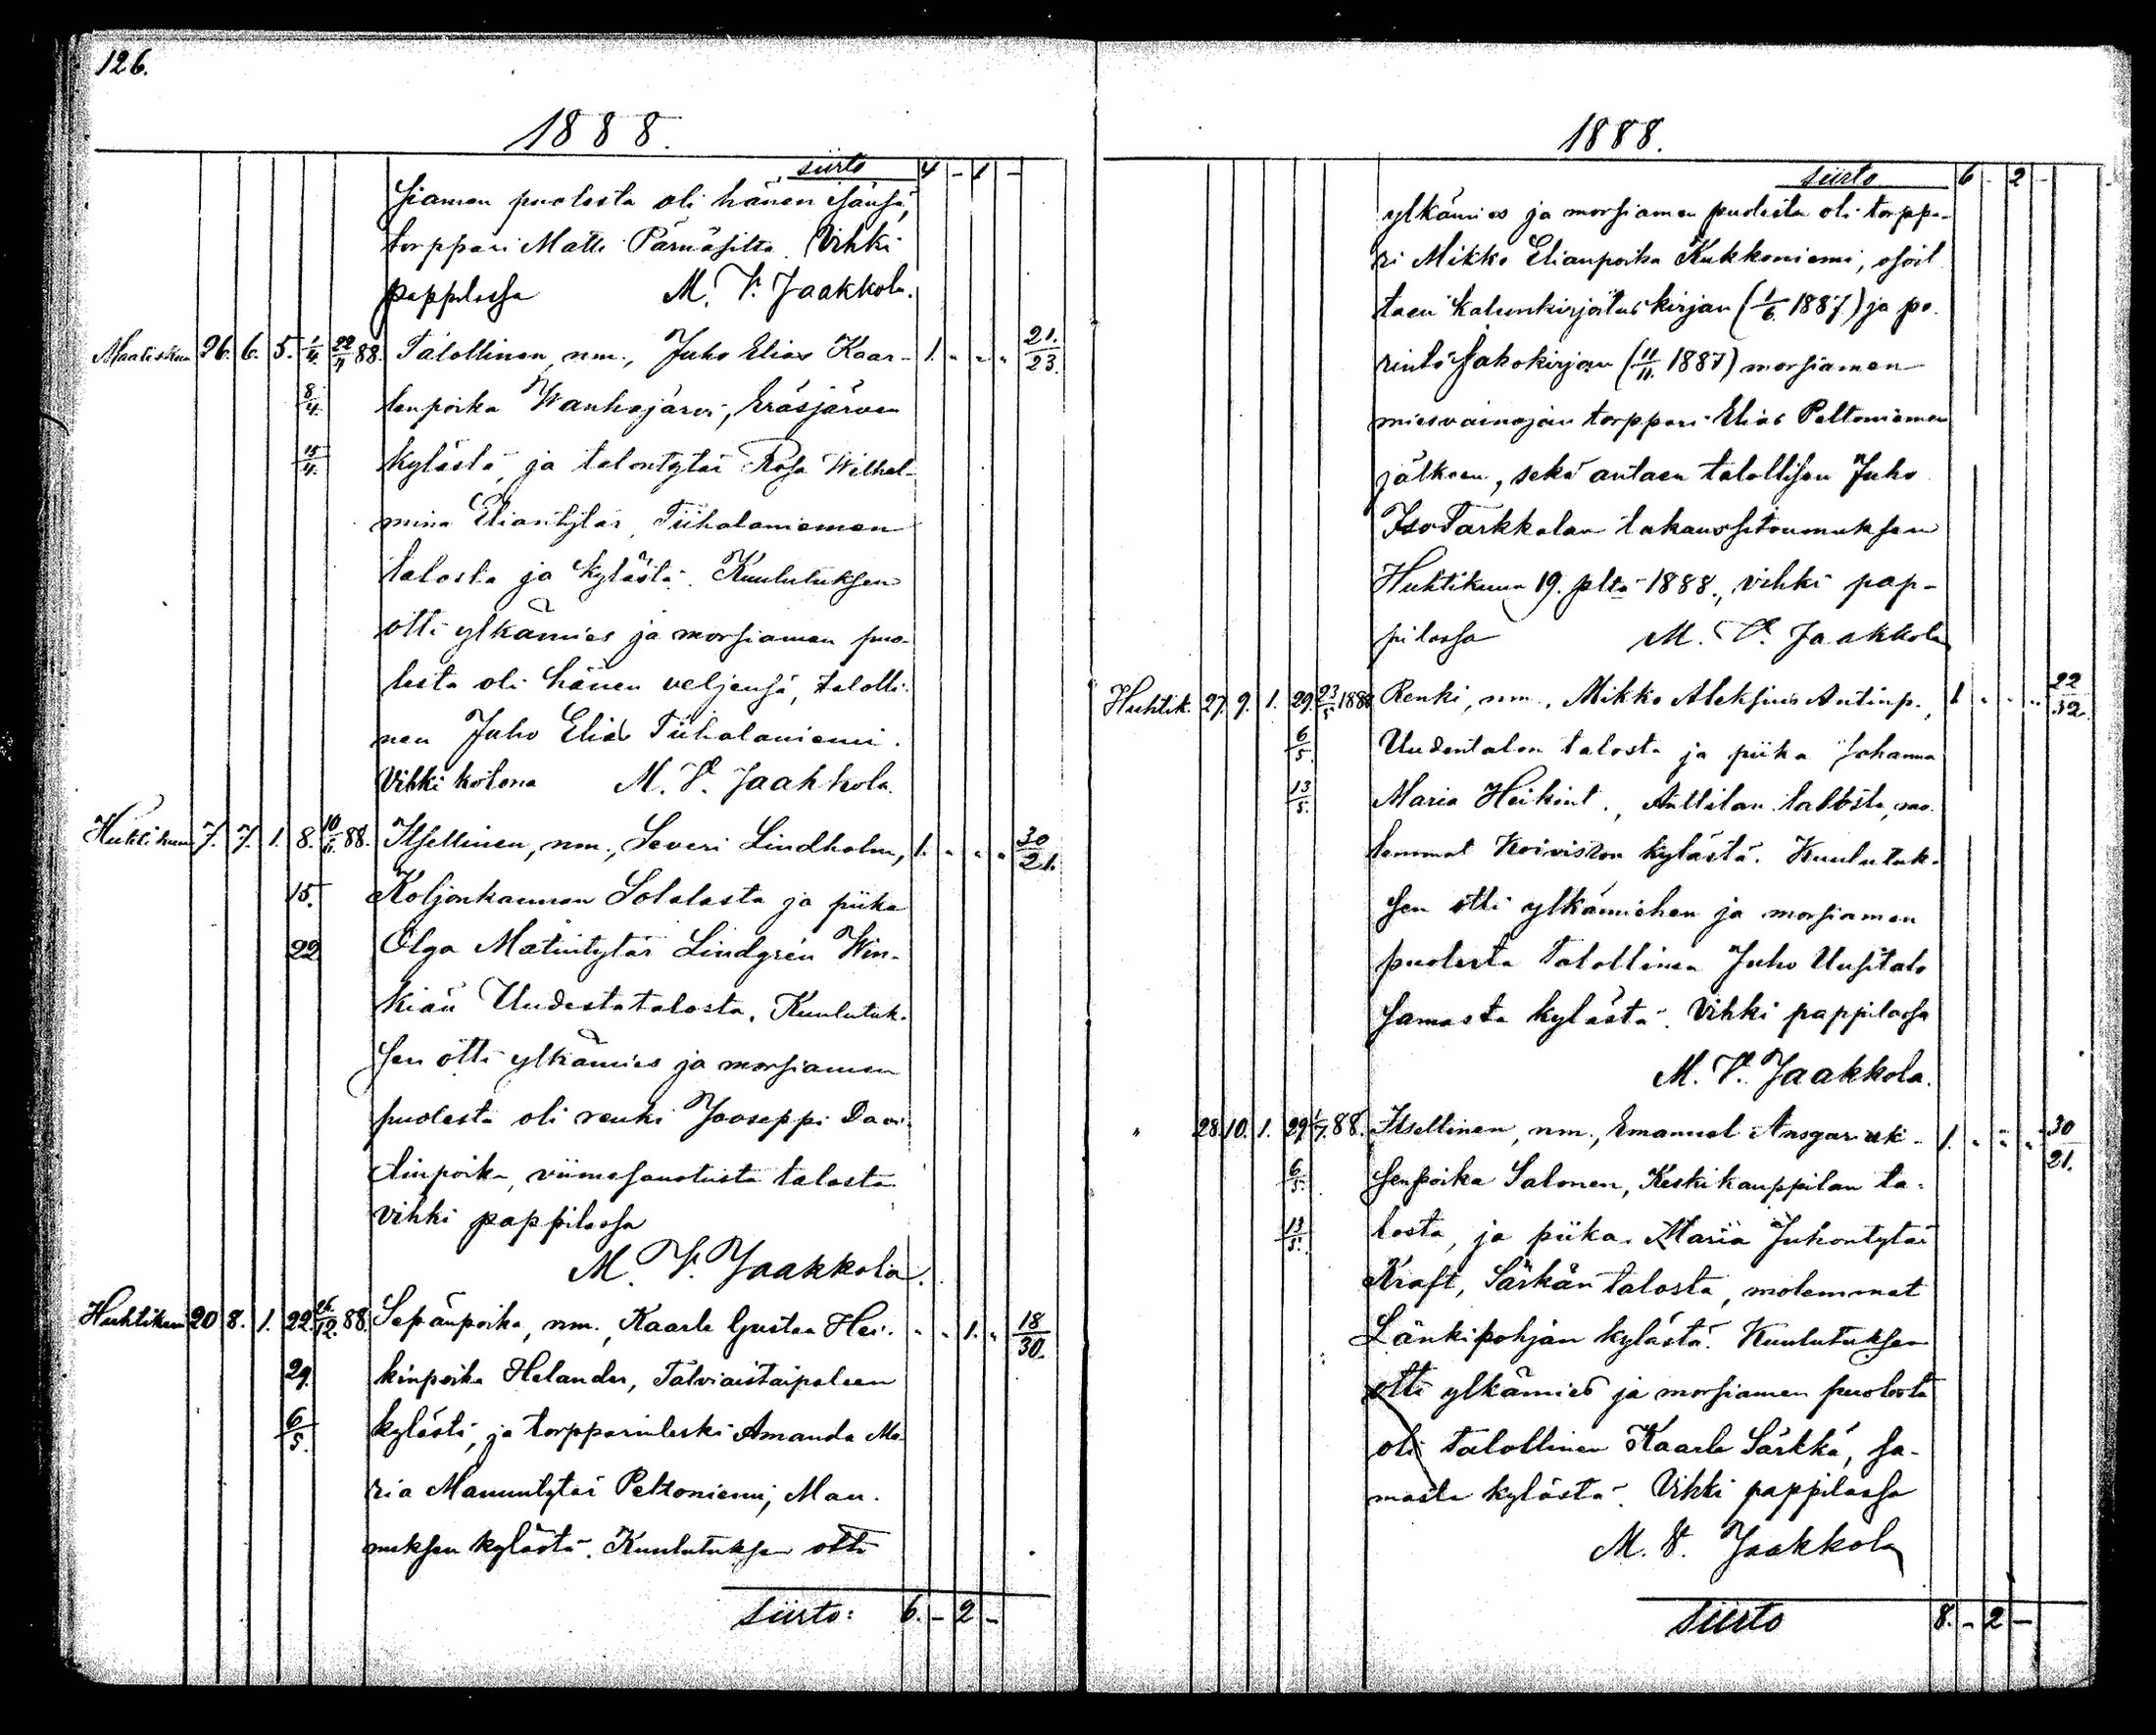 126.
1888.
siirto 4 - 1 -
siamen puolesta oli hänen isänsä,
torppari Matti Pärnäsilta. Vihki
pappilassa M. V. Jaakkola.
Maaliskuu 26. 6. 5. 1/4. 22/4 88. Talollinen, nm., Juho Elias Kaar- 1. „ „ „ 21./23.
8/4. lenpoika Wanhajärvi, Eräsjärven
15/4. kylästä, ja talontytär Rosa Wilhel-
mina Eliantytär Tiihalaniemen
talosta ja kylästä. Kuulutuksen
otti ylkämies ja morsiamen puo-
lesta oli hänen veljensä, talolli-
nen Juho Elias Tiihalaniemi.
Vihki kotona M. V. Jaakkola.
Huhtikuu 7. 7. 1. 8. 88. Itsellinen, nm., Severi Lindholm, 1. „ „ „ 30/21.
15. Koljonkannan Solalasta ja piika
22 Olga Matintytär Lindgrén Win-
kiän Uudestatalosta. Kuulutuk-
sen otti ylkämies ja morsiamen
puolesta oli renki Jooseppi Davi-
dinpoika, viimesanotusta talosta
vihki pappilassa
M. V. Jaakkola.
Huhtikuu 20 8. 1. 22. 26/12. 88. Sepänpoika, nm., Kaarle Gustaa Hei- „ „ 1. „ 18/30.
29. kinpoika Helander, Talviaistaipaleen
6/5. kylästä, ja torpparinleski Amanda Ma-
ria Manuntytär Peltoniemi, Man-
nuksen kylästä. Kuulutuksen otti
Siirto: 6. - 2 -
1888.
siirto 6 - 2 -
ylkämies ja morsiamen puolesta oli torppa-
ri Mikko Elianpoika Kukkoniemi, osoit
taen kalunkirjoituskirjan (1/6. 1887.) ja pe-
rintöjakokirjan (11/11. 1887) morsiamen
miesvainajan torppari Elias Peltoniemen
jälkeen, sekä antaen talollisen Juho
Iso Tarkkalan takaussitoumuksen
Huhtikuun 19. pltä 1888., vihki pap-
pilassa M. V. Jaakkola
Huhtik. 27. 9. 1. 29. 23/5 1888 Renki, nm., Mikko Aleksius Antinp., 1 „ „ „ 22/32.
6/5. Uudentalon talosta ja piika Johanna
13/5. Maria Heikint., Anttilan talosta, mo-
lemmat Koiviston kylästä. Kuulutuk-
sen otti ylkämiehen ja morsiamen
puolesta talollinen Juho Uusitalo
samasta kylästä. Vihki pappilassa
M. V. Jaakkola.
„ 28. 10. 1. 29 1/7. 88. Itsellinen, nm., Emanuel Ansgariuk- 1. „ „ „ 30/21.
6/5. senpoika Salonen, Keskikauppilan ta-
13/5. losta, ja piika Maria Juhontytär
Kraft, Särkän talosta, molemmat
Länkipohjan kylästä. Kuulutuksen
otti ylkämies ja morsiamen puolesta
oli talollinen Kaarle Särkkä, sa-
masta kylästä. Vihki pappilassa
M. V. Jaakkola
Siirto 8. - 2 -